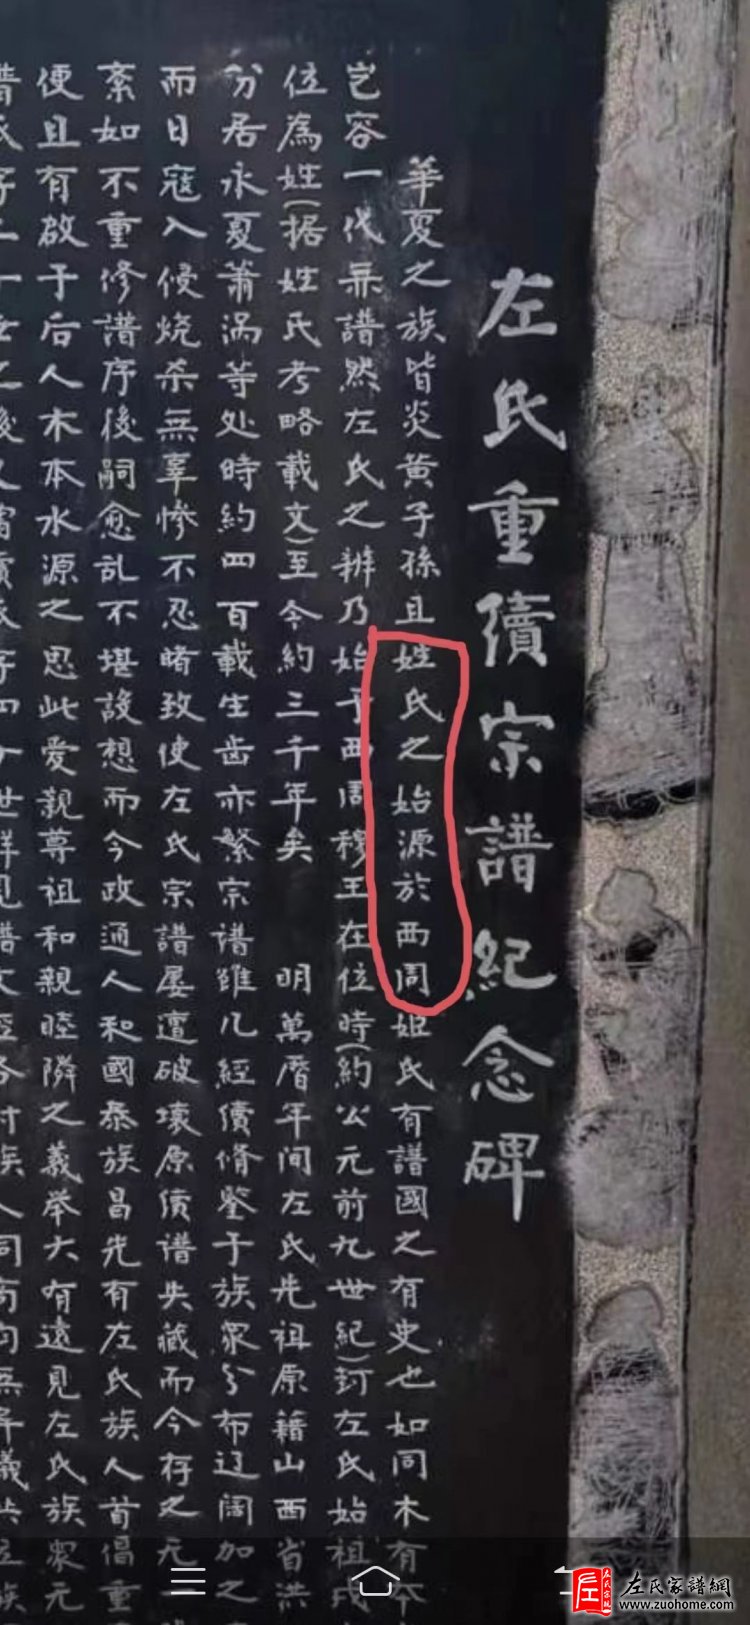 左氏重續宗譜紀念碑
華夏之族皆炎黄子孫且姓氏之始源於西周姬氏有譜國之有史也如同木有本
岂容一代無譜然左氏之辨乃始于西周穆王在位時(約公元前九世紀)封左氏始祖戎
位為姓(据姓氏考略載文)至今約三千年矣 明萬曆年间左氏先祖原籍山西省洪
分居永夏萧涡等处時約四百載生齿亦繁宗谱雖几經續脩鉴于族眾分布辽阔加之
而日寇入侵烧杀無辜惨不忍睹致使左氏宗譜屡遭破壞原续谱失藏而今存之无
紊如不重修譜序後嗣愈乱不堪設想而今政通人和國泰族昌先有左氏族人首倡重
便且有啟于后人木本水源之思此爱親尊祖和親睦隣之義举大有遠見左氏族眾元
左氏家譜網
www.zuohome.com